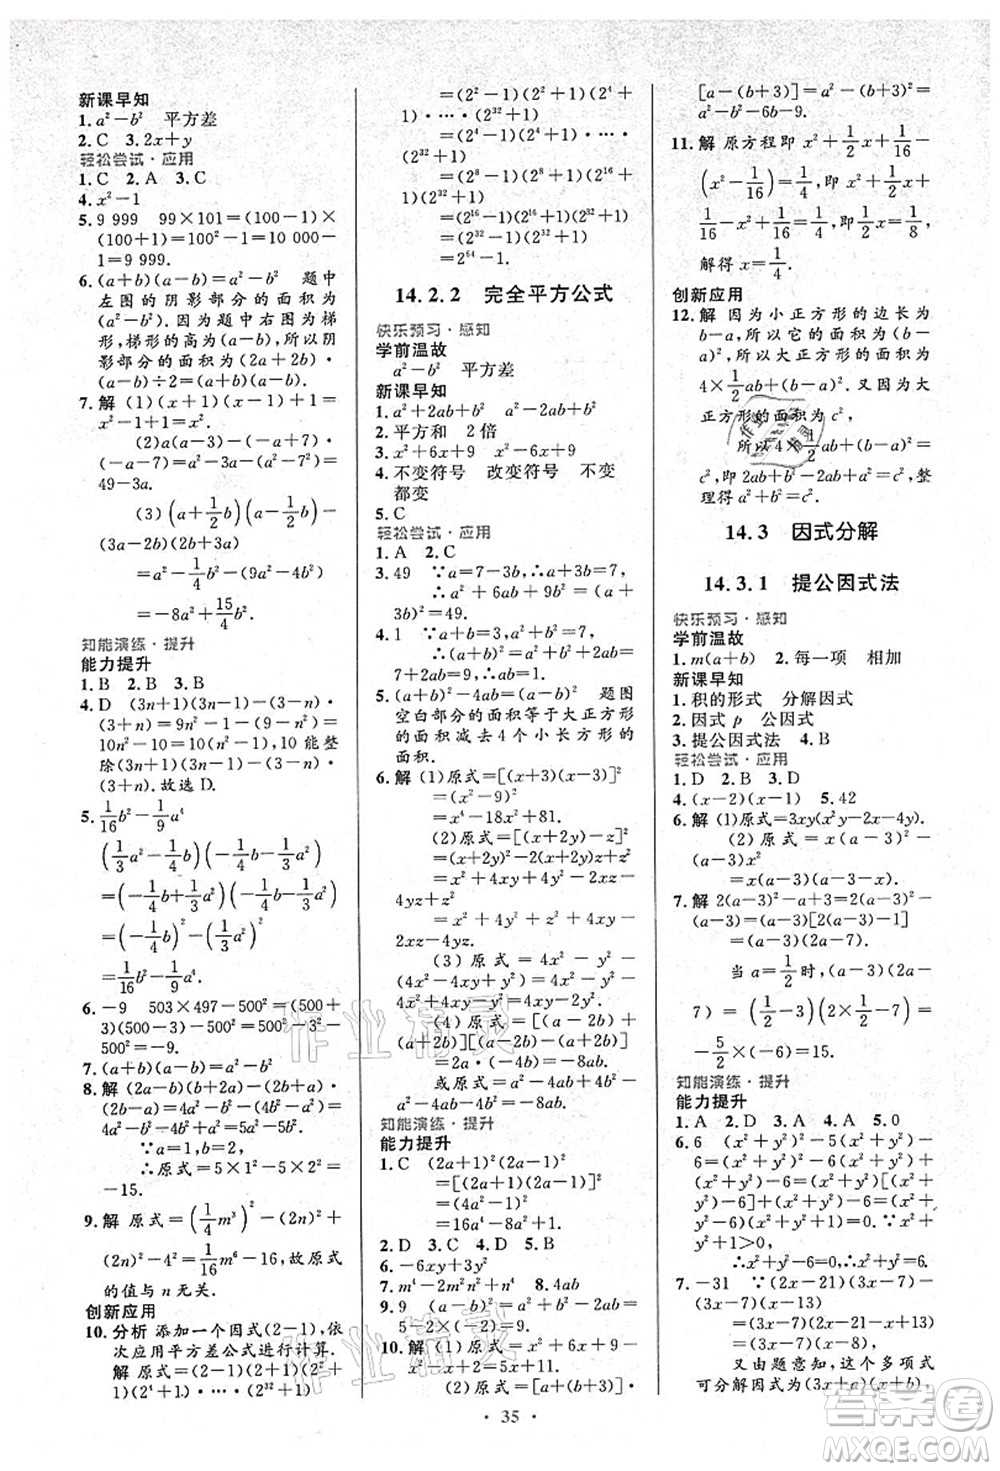 新课早知
1.a²-b² 平方差
2.C 3.2x+y
轻松尝试·应用
1.C 2.A 3.C
4.x²-1
5.9 999 99×101=(100-1)×
(100+1)=100²-1=10 000-
1=9 999.
6.(a+b)(a-b)=a²-b² 题中
左图的阴影部分的面积为
a²-b²,题中右图为两个梯
形,梯形的高为(a-b),所以阴
影部分的面积为(2a+2b)·
(a-b)÷2=(a+b)(a-b).
7.解 (1)(x+1)(x-1)+1=
x²-1+1=x².
(2)a(a-3)-(a+7)·
(a-7)=a²-3a-a²+49=
49-3a.
(3)(a+1/2b)(a-1/2b)-
(3a-2b)(3a+2b)
=a²-1/4b²-9a²+4b²
=-8a²+15/4b².
知能演练·提升
能力提升
1.B 2.B 3.B
4.D (3n+1)(3n-1)-(3-n)·
(3+n)=9n²-1-(9-n²)=
10n²-10=10(n²-1),10能整
除(3n+1)(3n-1)-(3-n)·
(3+n).故选D.
5.1/16b²-1/9a⁴
(1/3a²-1/4b)(-1/4b-1/3a²)
=(-1/4b+1/3a²)(-1/4b-1/3a²)
=(-1/4b)²-(1/3a²)²
=1/16b²-1/9a⁴.
6.-9 503×497-500²=(500+
3)(500-3)-500²=500²-3²-
500²=-9.
7.(a+b)(a-b)=a²-b²
8.解 (2a-b)(b+2a)-(2b+a)·
(2b-a)=4a²-b²-(4b²-a²)=
4a²-b²-4b²+a²=5a²-5b².
∵a=1,b=2,
∴原式=5×1²-5×2²=
-15.
9.解 原式=(1/4m³)²-(2n)²+
(2n)²-4²=1/16m⁶-16,故原式
的值与n无关.
创新应用
10.分析 添加一个因式(2-1),依
次应用平方差公式进行计算.
解 原式=(2-1)(2+1)(2²+
1)(2⁴+1)·…·(2³²+1)
=(2²-1)(2²+1)(2⁴+1)
·…·(2³²+1)
=(2⁴-1)(2⁴+1)·…·
(2³²+1)
=(2⁸-1)(2⁸+1)(2¹⁶+
1)(2³²+1)
=(2¹⁶-1)(2¹⁶+1)(2³²+1)
=(2³²-1)(2³²+1)
=2⁶⁴-1.
14.2.2 完全平方公式
快乐预习·感知
学前温故
a²-b² 平方差
新课早知
1.a²+2ab+b² a²-2ab+b²
2.平方和 2倍
3.x²+6x+9 x²-6x+9
4.不变符号 改变符号 不变
都变
5.C
轻松尝试·应用
1.A 2.C
3.49 ∵a=7-3b,∴a+3b=
7.∴a²+6ab+9b²=(a+
3b)²=7²=49.
4.1 ∵a+b=3,∴(a+b)²=
9.∴a²+2ab+b²=9.∵a²+b²=
7,∴7+2ab=9.∴ab=1.
5.(a+b)²-4ab=(a-b)² 题图
空白部分的面积等于大正方形
的面积减去4个小长方形的
面积.
6.解 (1)原式=[(x+3)(x-3)]²
=(x²-9)²
=x⁴-18x²+81.
(2)原式=[(x+2y)-z]²
=(x+2y)²-2(x+2y)z+z²
=x²+4xy+4y²-2xz-
4yz+z²
=x²+4y²+z²+4xy-
2xz-4yz.
(3)原式=4x²-y²-
(4x²-12xy+9y²)=4x²-y²-
4x²+12xy-9y²=12xy-10y².
(4)原式=[(a-2b)+
(a+2b)][(a-2b)-(a+2b)]-
8ab=2a·(-4b)-8ab=
-8ab-8ab=-16ab.
知能演练·提升
能力提升
1.C (2a+1)²(2a-1)²
=[(2a+1)(2a-1)]²
=(4a²-1)²
=16a⁴-8a²+1.
2.D 3.D 4.C 5.C
6.-6xy+3y²
7.m⁴-2m²n²+n⁴ 8.4ab
9.9 (2-x)²+(x-3)²=(2-x+
x-3)²-2(2-x)(x-3)=(-1)²-
10.解 (1)原式=x²+6x+9-
(x²-4)-2x²=-2x²+6x+13.
(2)原式=[a+(b+3)]·
[a-(b+3)]=a²-(b+3)²=
a²-b²-6b-9.
11.解 原方程即x²+1/2x+1/16-
(x²-1/16)=1/4,即x²+1/2x+
1/16-x²+1/16=1/4,即1/2x=1/8,
解得x=1/4.
创新应用
12.解 因为小正方形的边长为
b-a,所以它的面积为(b-
a)²,所以大正方形的面积为
4×1/2ab+(b-a)².又因为大
正方形的面积为c²,
所以4×1/2ab+(b-a)²=
c²,即2ab+b²-2ab+a²=c²,整
理得a²+b²=c².
14.3 因式分解
14.3.1 提公因式法
快乐预习·感知
学前温故
1.m(a+b) 2.每一项 相加
新课早知
1.积的形式 分解因式
2.因式p 公因式
3.提公因式法 4.B
轻松尝试·应用
1.D 2.B 3.D
4.(x-2)(x-1) 5.42
6.解 (1)原式=3xy(x²y-2x-4y).
(2)原式=x(a-3)-
(a-3)x²
=x(a-3)(1-x).
7.解 2(a-3)²-a+3=2(a-3)²-
(a-3)=(a-3)[2(a-3)-1]
=(a-3)(2a-7).
当a=1/2时,(a-3)(2a-
7)=(1/2-3)(2×1/2-7)=
-5/2×(-6)=15.
知能演练·提升
能力提升
1.A 2.D 3.C 4.A 5.0
6.6 (x²+y²)²-5(x²+y²)-
6=(x²+y²)²-6(x²+y²)+
(x²+y²)-6=(x²+y²)[(x²+
y²)-6]+(x²+y²)-6=(x²+
y²-6)(x²+y²+1)=0.
∵x²+y²+1>0,
∴x²+y²-6=0,∴x²+y²=6.
7.-31 ∵(2x-21)(3x-7)-
(3x-7)(x-13)
=(3x-7)(2x-21-x+13)
=(3x-7)(x-8),
又由题意知,这个多项式
可分解因式为(3x+a)(x+b),
· 35 ·
作业精灵
作业精灵
答案卷
MXQE.COM